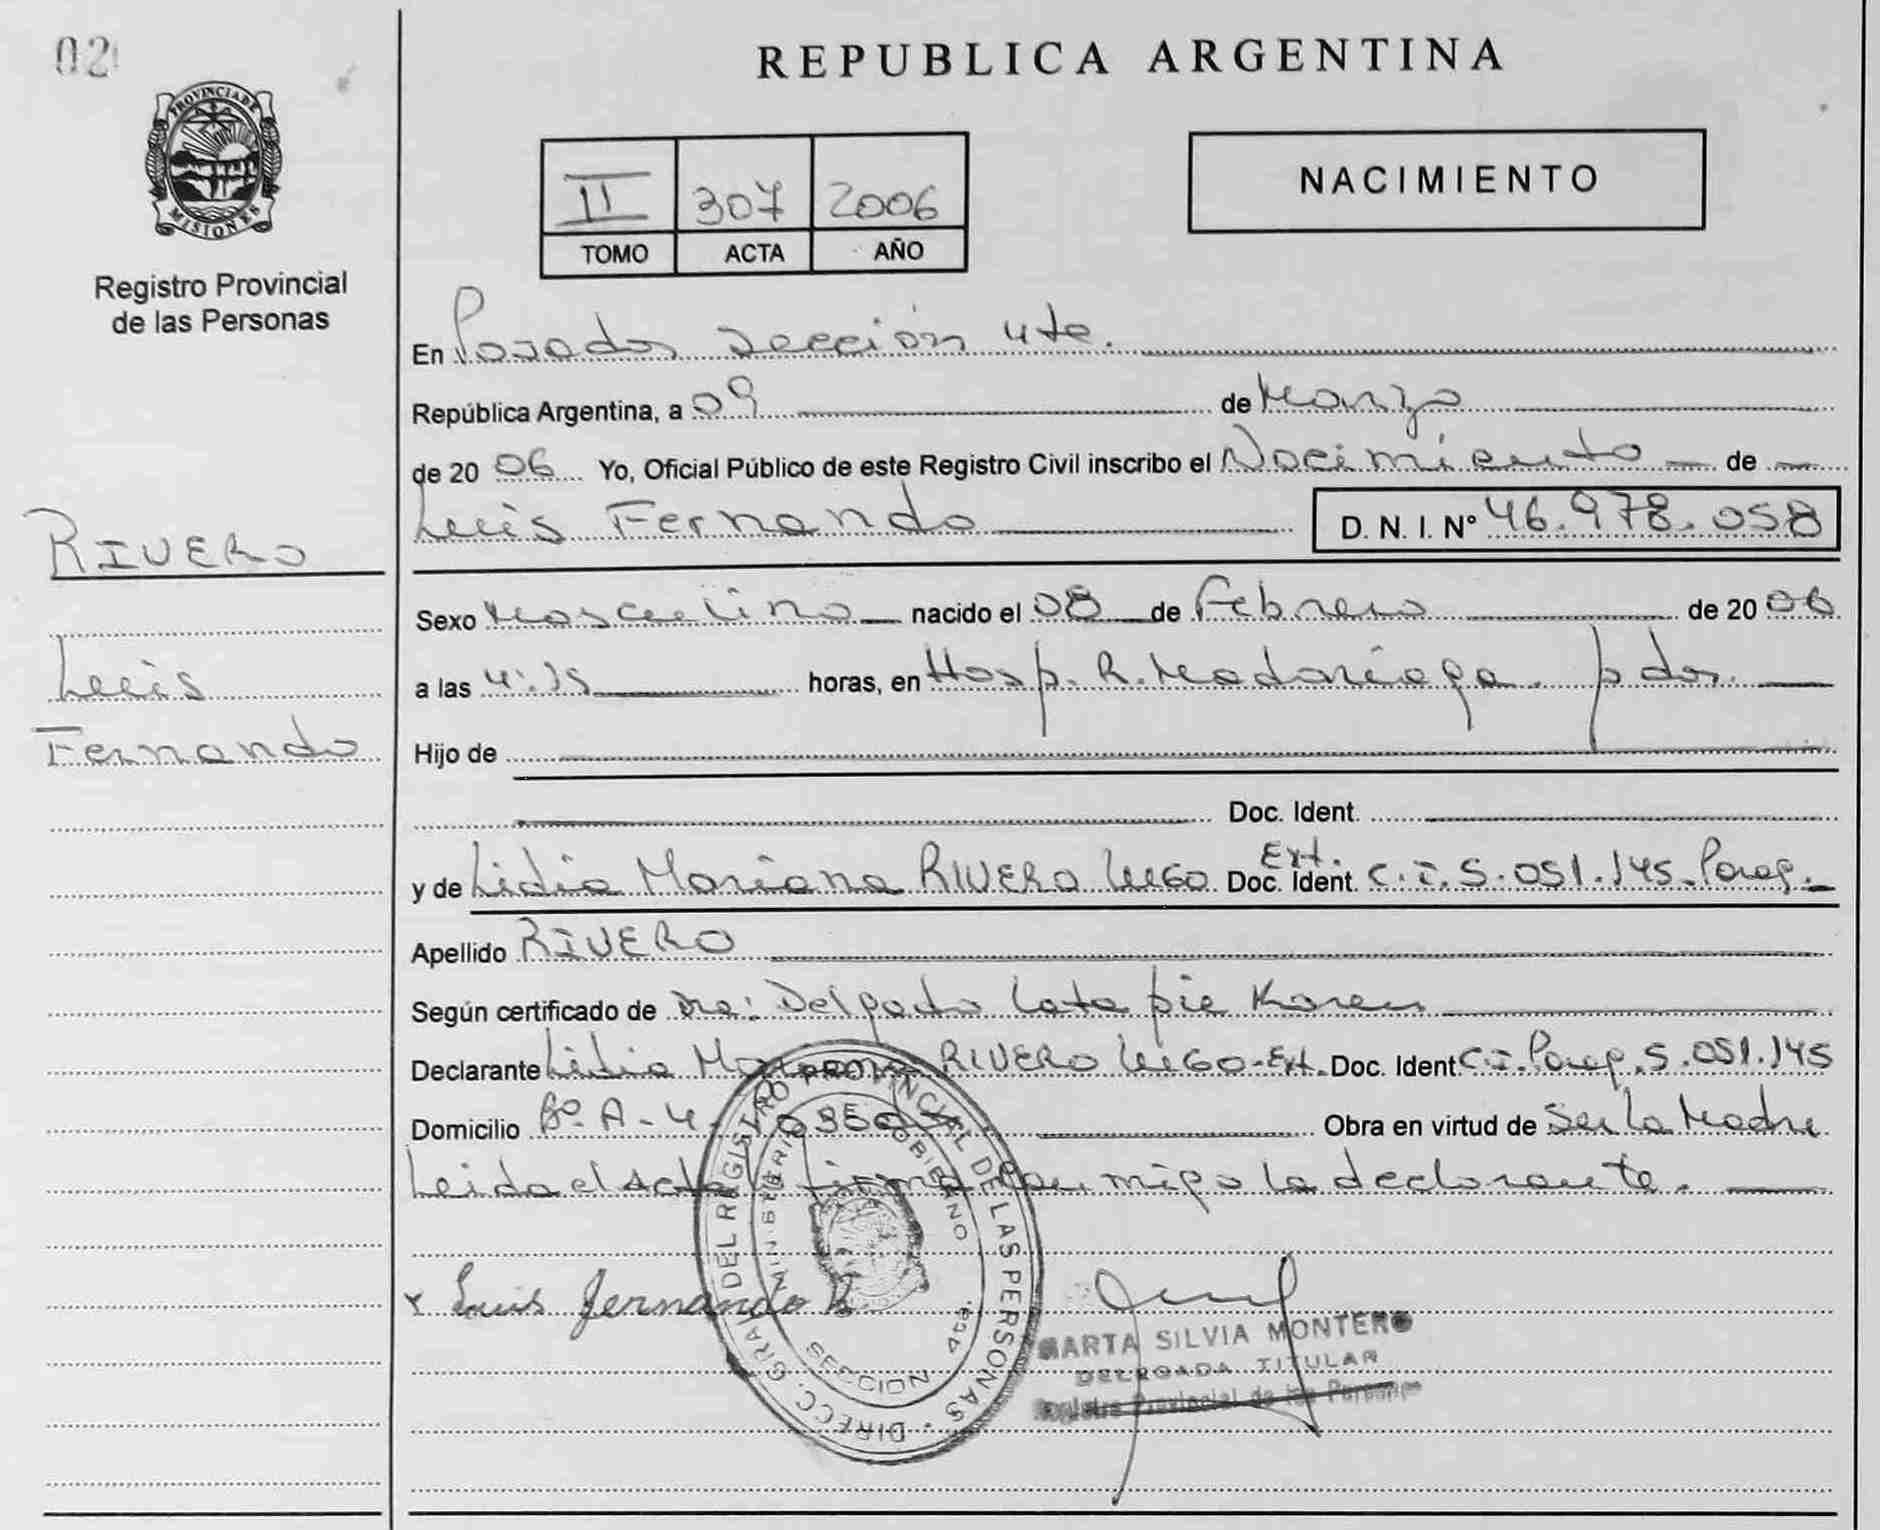 02
PROVINCIA DE
MISIONES
Registro Provincial
de las Personas
RIVERO
Luis
Fernando
REPUBLICA ARGENTINA
II 307 2006
TOMO ACTA AÑO
NACIMIENTO
En Posadas sección 4te.
República Argentina, a 09 de Marzo
de 20 06 Yo, Oficial Público de este Registro Civil inscribo el Nacimiento de
Luis Fernando D. N. I. Nº 46.978.058
Sexo Masculino nacido el 08 de Febrero de 20 06
a las horas, en Hosp. R. Madariaga. pdas.
Hijo de
Doc. Ident.
y de Lidia Mariana RIVERO LUGO Ext. Doc. Ident. C.I. 5.051.145 Parag.
Apellido RIVERO
Según certificado de Dra: Delgado Latapie Karen
Declarante Lidia Mariana RIVERO LUGO-Ext. Doc. Ident C.I. Parag. 5.051.145
Domicilio Bº A-4 Obra en virtud de Ser la Madre
Leida el Acta firma con migo la declarante.
x Luis Fernando R
DIRECC. GRAL DEL REGISTRO PROVINCIAL DE LAS PERSONAS
MINISTERIO GOBIERNO
SECCION 4ta.
MARTA SILVIA MONTERO
DELEGADA TITULAR
Registro Provincial de las Personas